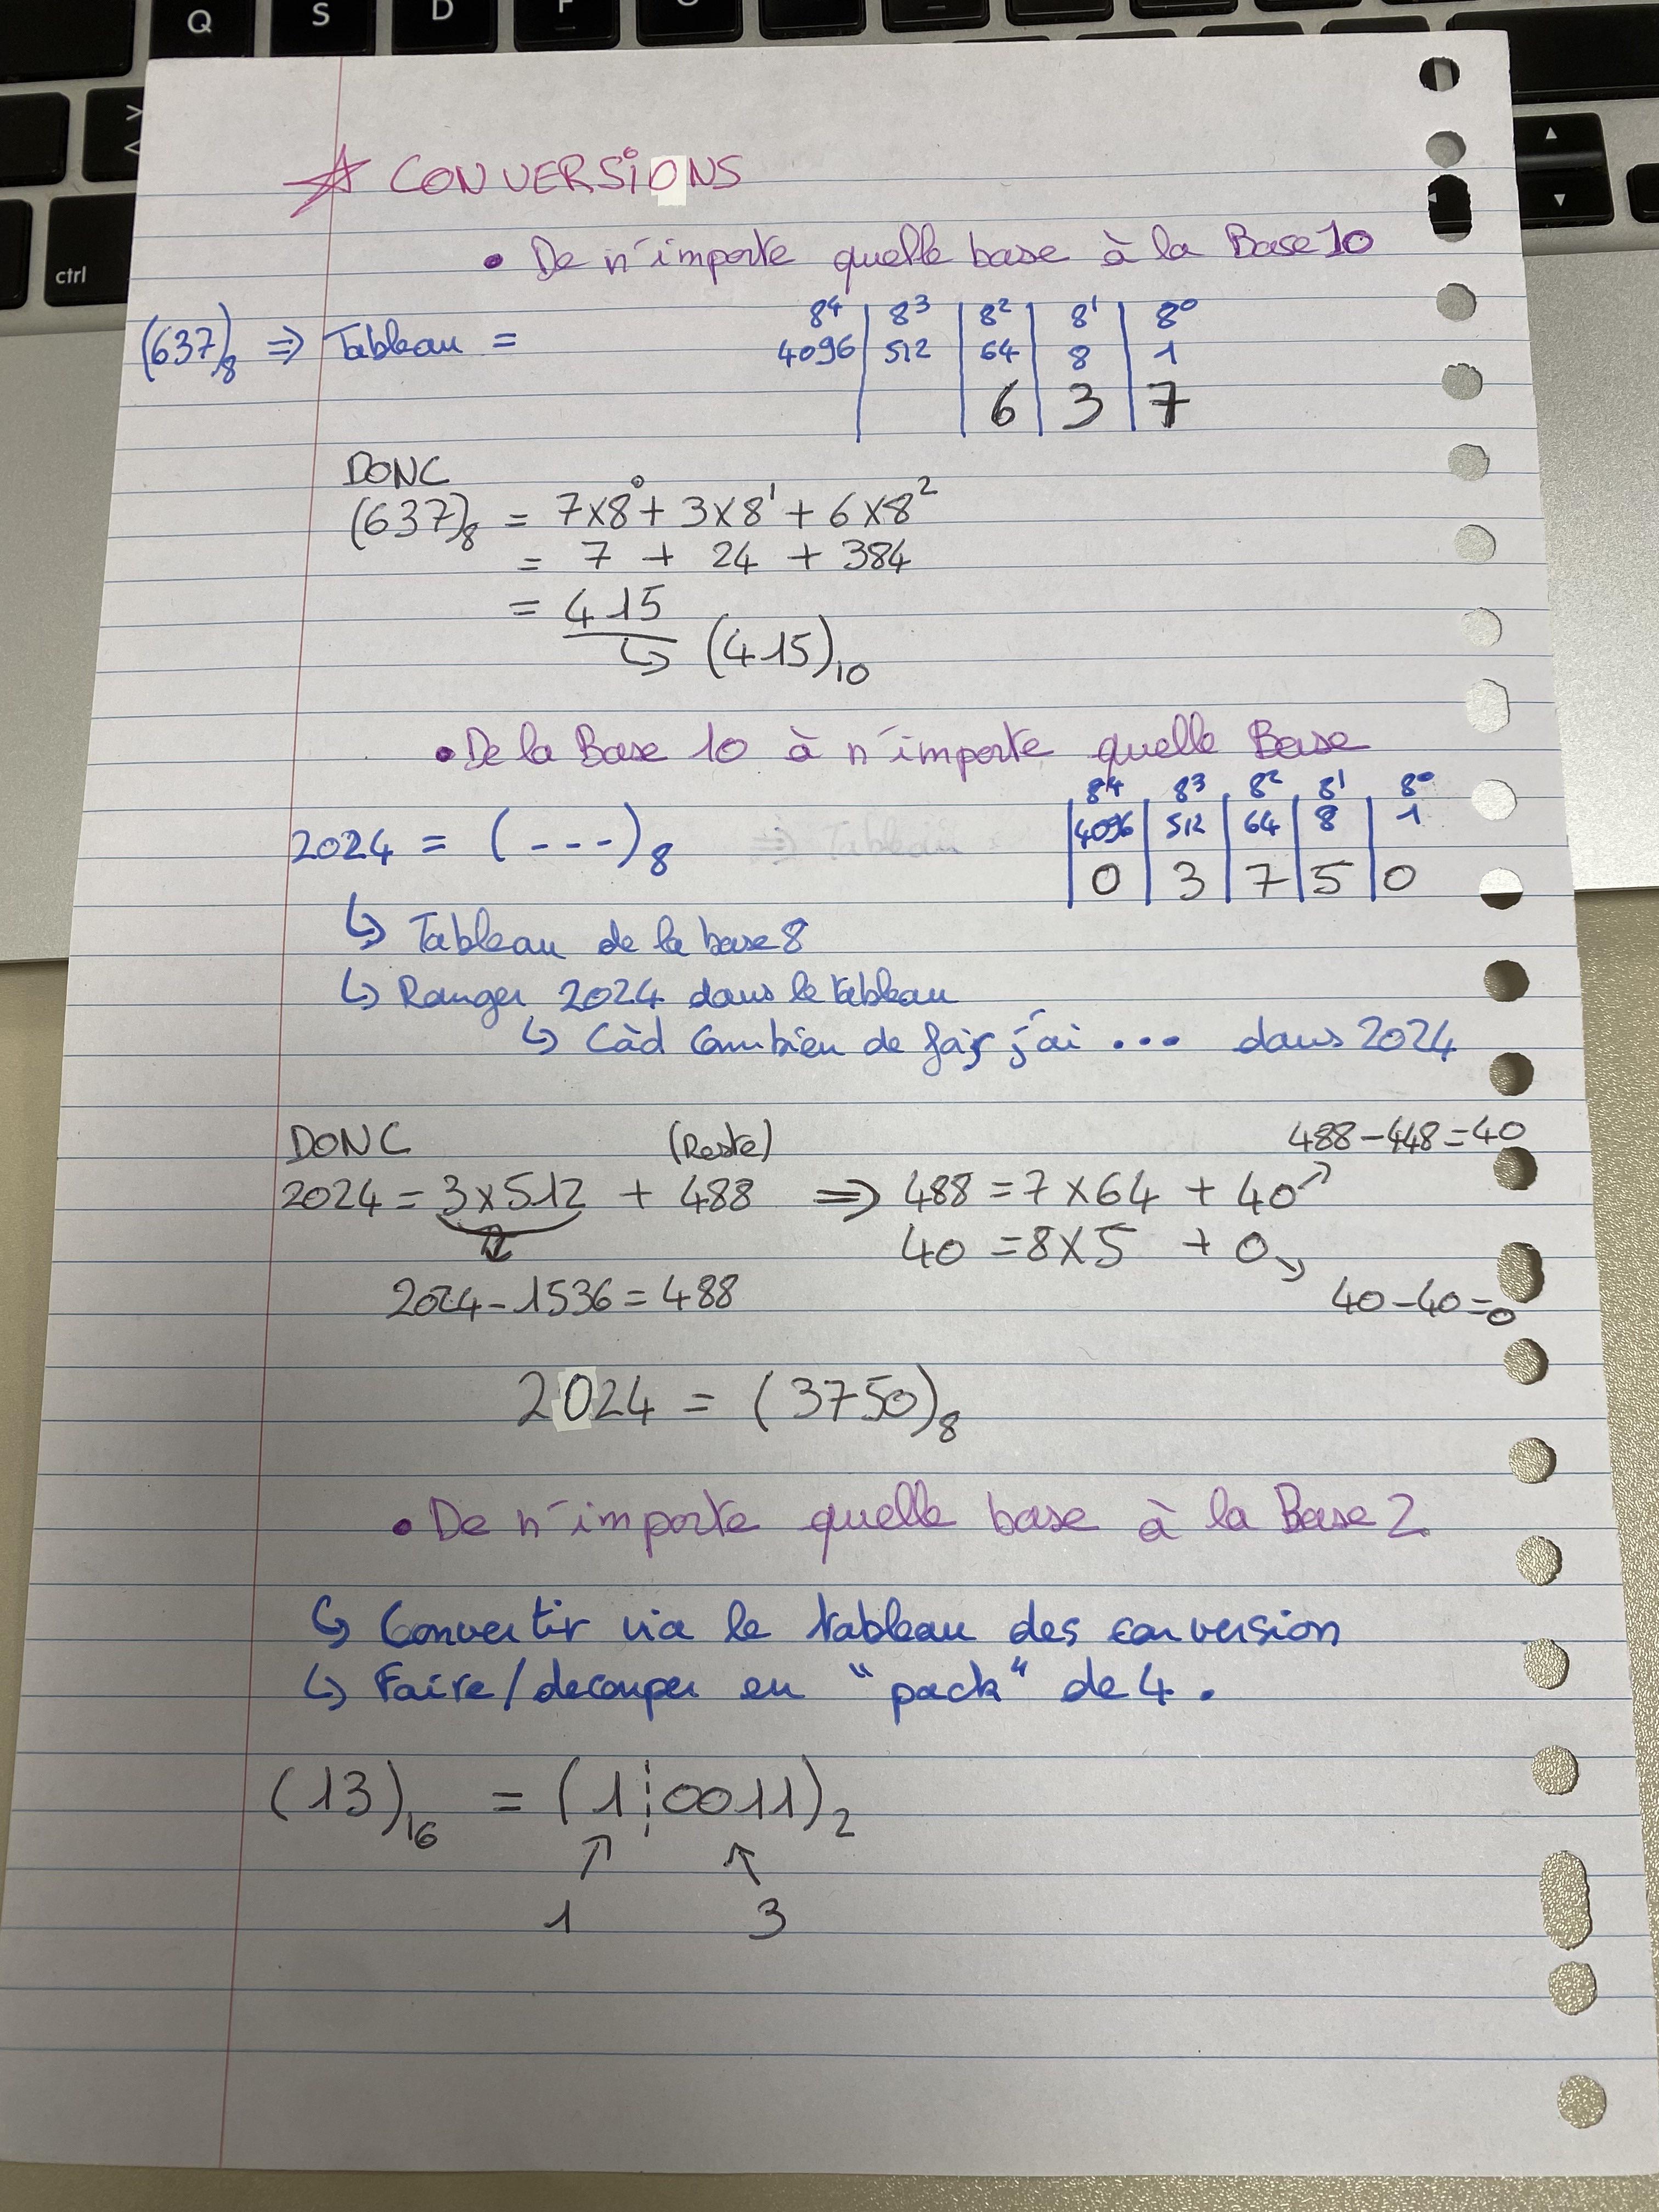 Q S D F
> <
ctrl
☆ CONVERSiONS
• De n'importe quelle base à la Base 10
8⁴ 8³ 8² 8¹ 8⁰
(637)₈ ⇒ Tableau = 4096 512 64 8 1
6 3 7
DONC
(637)₈ = 7x8⁰ + 3x8¹ + 6x8²
= 7 + 24 + 384
= 415
↳ (415)₁₀
• De la Base 10 à n'importe quelle Base
8⁴ 8³ 8² 8¹ 8⁰
2024 = (---)₈ 4096 512 64 8 1
0 3 7 5 0
↳ Tableau de la base 8
↳ Ranger 2024 dans le tableau
↳ Càd Combien de fois j'ai ... dans 2024
DONC (Reste) 488-448=40
2024 = 3x512 + 488 ⇒ 488 = 7x64 + 40
40 = 8x5 + 0
2024-1536=488 40-40=0
2024 = (3750)₈
• De n'importe quelle base à la Base 2
↳ Convertir via le tableau des conversion
↳ Faire/decouper en "pack" de 4.
(13)₁₆ = (1¦0011)₂
1 3